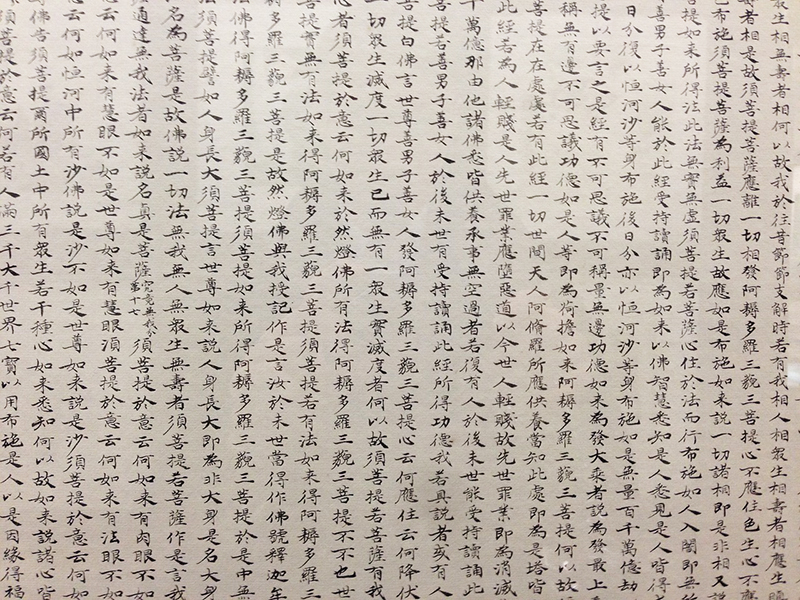 眾生相無壽者相何以故我於往昔節節支解時若有我相人相眾生相壽者相應生瞋
壽者相是故須菩提菩薩應離一切相發阿耨多羅三藐三菩提心不應住色生心不應
布施須菩提菩薩為利益一切眾生故應如是布施如來說一切諸相即是非相又說
菩提如來所得法此法無實無虛須菩提若菩薩心住於法而行布施如人入闇即無所
善男子善女人能於此經受持讀誦即為如來以佛智慧悉知是人悉見是人皆得
日分復以恒河沙等身布施後日分亦以恒河沙等身布施如是無量百千萬億劫
提以要言之是經有不可思議不可稱量無邊功德如來為發大乘者說為發最上
稱無有邊不可思議功德如是人等即為荷擔如來阿耨多羅三藐三菩提何以故
菩提在在處處若有此經一切世間天人阿脩羅所應供養當知此處即為是塔皆
此經若為人輕賤是人先世罪業應墮惡道以今世人輕賤故先世罪業即為消滅
千萬億那由他諸佛悉皆供養承事無空過者若復有人於後末世能受持讀誦此
菩提若善男子善女人於後末世有受持讀誦此經所得功德我若具說者或有人
菩提白佛言世尊善男子善女人發阿耨多羅三藐三菩提心云何應住云何降伏
一切眾生滅度一切眾生已而無有一眾生實滅度者何以故須菩提若菩薩有我
心者須菩提於意云何如來於然燈佛所有法得阿耨多羅三藐三菩提不不也世
菩提實無有法如來得阿耨多羅三藐三菩提須菩提若有法如來得阿耨多羅三
多羅三藐三菩提是故然燈佛與我授記作是言汝於來世當得作佛號釋迦牟
法佛得阿耨多羅三藐三菩提須菩提如來所得阿耨多羅三藐三菩提於是中無
法須菩提譬如人身長大須菩提言世尊如來說人身長大即為非大身是名大身
名為菩薩是故佛說一切法無我無人無眾生無壽者須菩提若菩薩作是言我
通達無我法者如來說名真是菩薩究竟無我分第十七須菩提於意云何如來有肉眼不如
云何如來有慧眼不如是世尊如來有慧眼須菩提於意云何如來有法眼不如
云何如恒河中所有沙佛說是沙不如是世尊如來說是沙須菩提於意云何如
佛告須菩提爾所國土中所有眾生若干種心如來悉知何以故如來說諸心皆
須菩提於意云何若有人滿三千大千世界七寶以用布施是人以是因緣得福